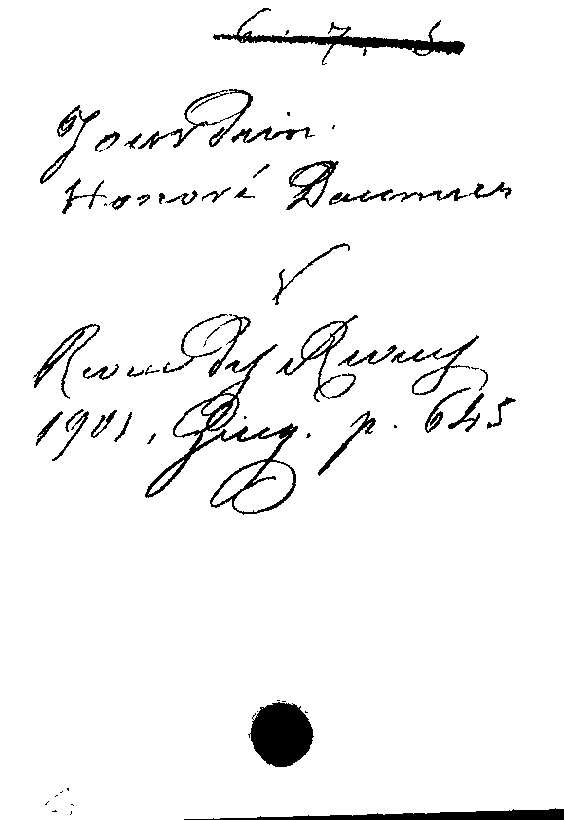 Jourdain.
Honoré Daumier
Revue des Revues
1901, p. 645